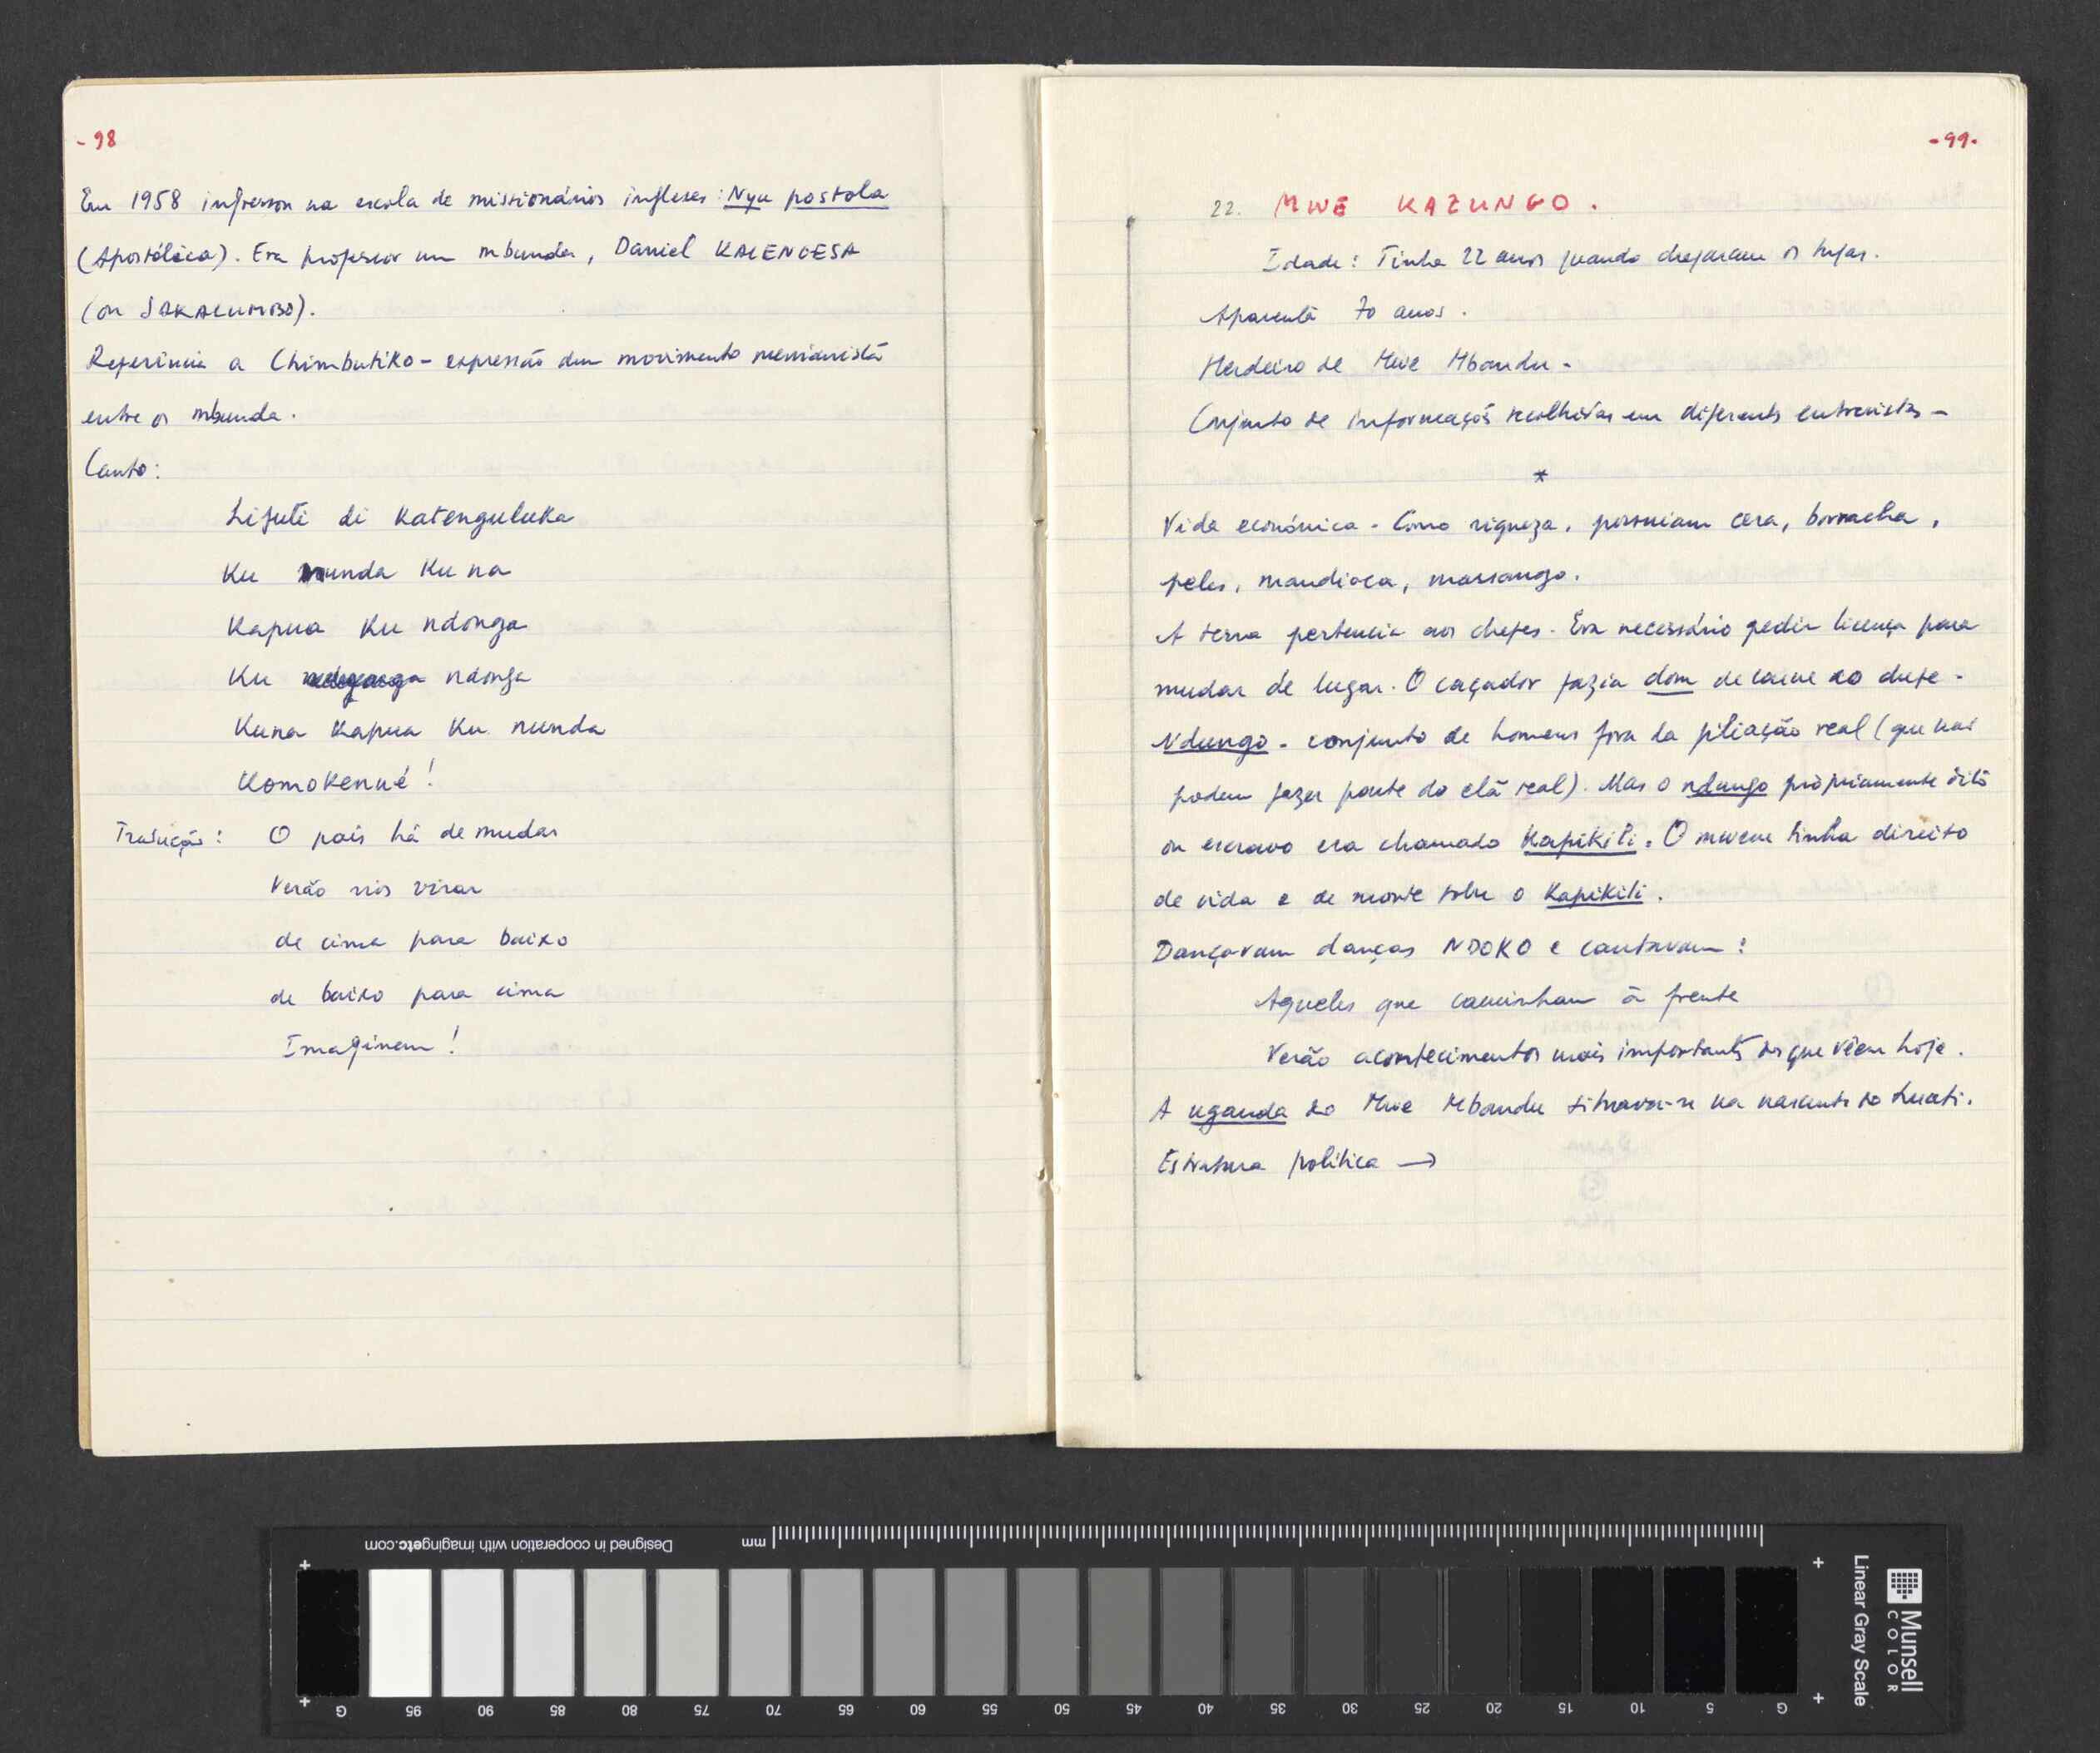 - 98
Em 1958 ingressou na escola de missionários ingleses: Nyu postola
(Apostólica). Era professor um mbunda, Daniel KALENGESA
(ou SAKALUMBO).
Referência a Chimbutiko - expressão dum movimento messianista
entre os mbunda.
Canto:
Lifuti di Katenguluka
Ku nunda Ku na
Kapua Ku ndonga
Ku ndonga
Kuna Kapua Ku nunda
Komokenné!
Tradução: O país há de mudar
Verão nós virar
de cima para baixo
de baixo para cima
Imaginem!
- 99 -
22. MWE KAZUNGO.
Idade: Tinha 22 anos quando chegaram os tugas.
Aparenta 70 anos.
Herdeiro de Mwe Mbandu -
Conjunto de informações recolhidas em diferents entrevistas -
*
Vida económica - Como riqueza, possuiam cera, borracha,
peles, mandioca, massango.
A terra pertencia aos chefes - Era necessário pedir licença para
mudar de lugar. O caçador fazia dom de carne ao chefe -
Ndungo - conjunto de homens fora da filiação real (que nao
podem fazer parte do clã real). Mas o ndungo pròpriamente dito
ou escravo era chamado Kapikili. O mwene tinha direito
de vida e de morte sobre o Kapikili.
Dançavam danças NDOKO e cantavam:
Aqueles que caminham à frente
Verão acontecimentos mais importants dos que vêem hoje.
A nganda do Mwe Mbandu situava-se na nascente do Luati.
Estrutura politica →
Designed in cooperation with imagingetc.com
mm
G 95 90 85 80 75 70 65 60 55 50 45 40 35 30 25 20 15 10 5 G
Linear Gray Scale
Munsell
COLOR